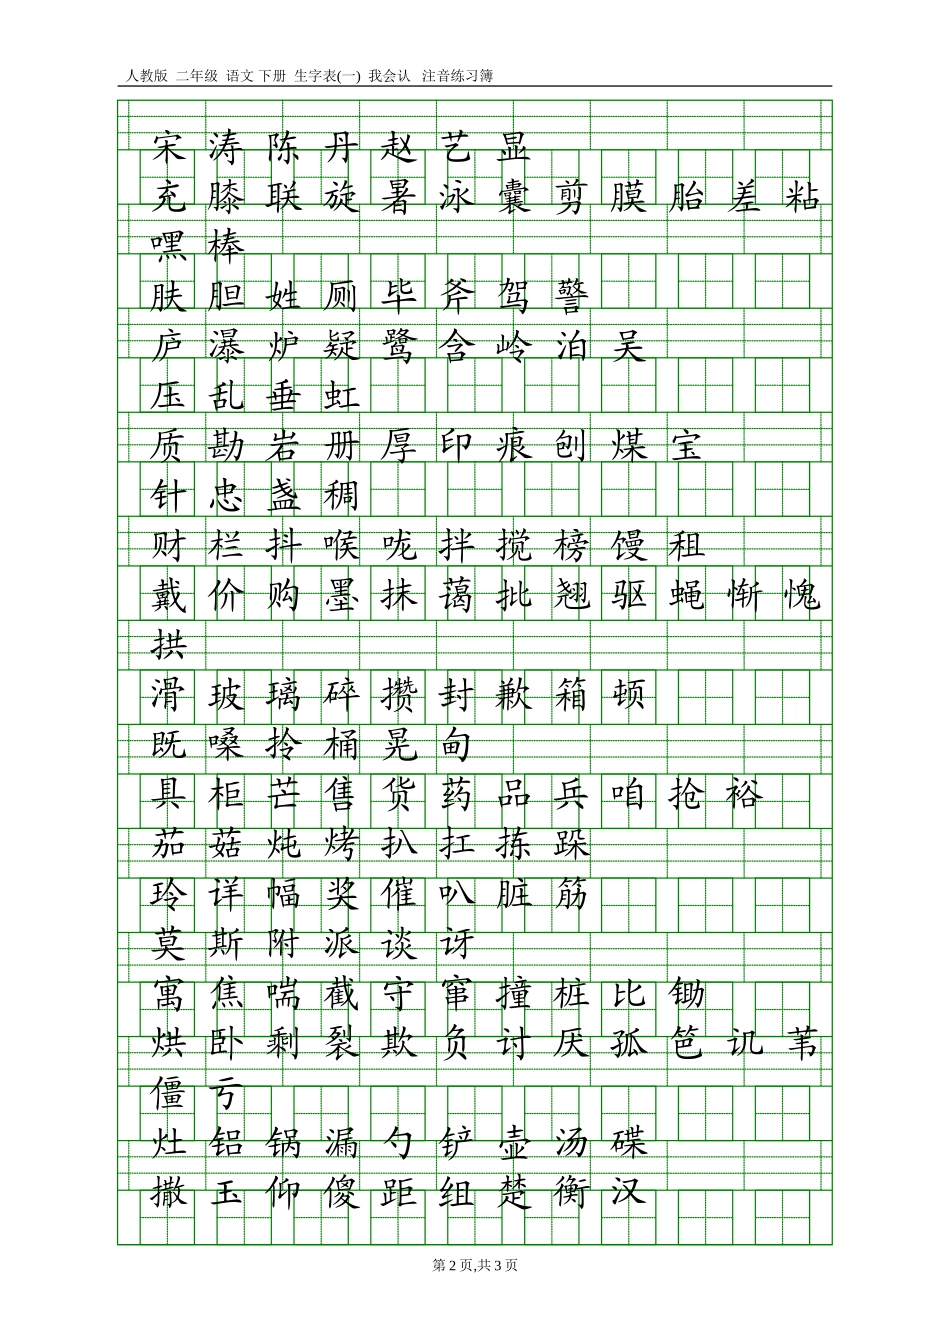 人教版 二年级 语文 下册 生字表(一) 我会认 注音练习簿
宋 涛 陈 丹 赵 艺 显
充 膝 联 旋 暑 泳 囊 剪 膜 胎 差 粘
嘿 棒
肤 胆 姓 厕 毕 斧 驾 警
庐 瀑 炉 疑 鹭 含 岭 泊 吴
压 乱 垂 虹
质 勘 岩 册 厚 印 痕 刨 煤 宝
针 忠 盏 稠
财 栏 抖 喉 咙 拌 搅 榜 馒 租
戴 价 购 墨 抹 蔼 批 翘 驱 蝇 惭 愧
拱
滑 玻 璃 碎 攒 封 歉 箱 顿
既 嗓 拎 桶 晃 甸
具 柜 芒 售 货 药 品 兵 咱 抢 裕
茄 菇 炖 烤 扒 扛 拣 跺
玲 详 幅 奖 催 叭 脏 筋
莫 斯 附 派 谈 讶
寓 焦 喘 截 守 窜 撞 桩 比 锄
烘 卧 剩 裂 欺 负 讨 厌 孤 笆 讥 苇
僵 亏
灶 铝 锅 漏 勺 铲 壶 汤 碟
撒 玉 仰 傻 距 组 楚 衡 汉
第 2 页,共 3 页